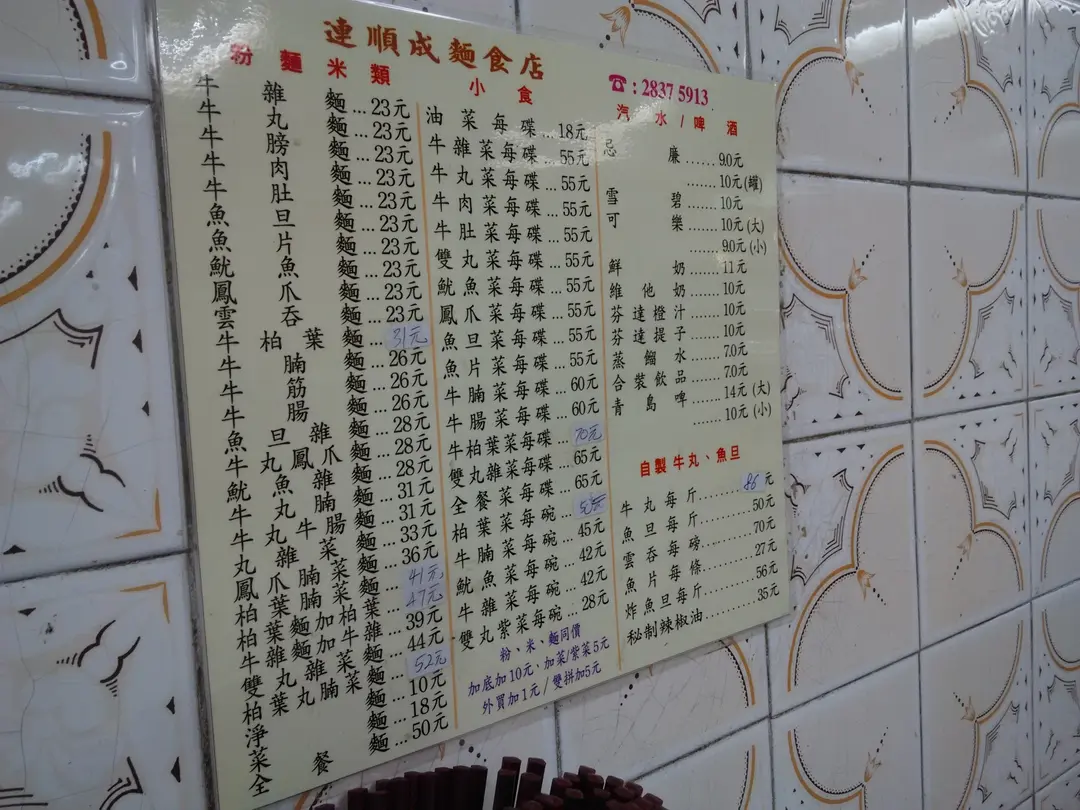 連順成麵食店
☎:2837 5913
粉麵米類
牛雜麵...23元
牛丸麵...23元
牛膀麵...23元
牛肉麵...23元
牛肚麵...23元
魚旦麵...23元
魚片麵...23元
魷魚麵...23元
鳳爪麵...23元
雲吞麵...23元
牛柏葉麵 31元
牛腩麵...26元
牛筋麵...26元
牛腸麵...28元
魚旦雜麵...28元
牛丸鳳爪麵...28元
魷魚雜麵...31元
牛丸腩麵...31元
丸雜牛腸麵...33元
鳳爪腩菜麵...36元
柏葉腩菜麵 41元
柏葉麵加柏葉 47元
牛雜麵加牛雜...39元
雙丸雜菜麵...44元
柏葉丸腩菜麵 52元
淨麵...10元
菜麵...18元
全餐麵...50元
小食
油菜每碟...18元
牛雜菜每碟...55元
牛丸菜每碟...55元
牛肉菜每碟...55元
牛肚菜每碟...55元
雙丸菜每碟...55元
魷魚菜每碟...55元
鳳爪菜每碟...55元
魚旦菜每碟...55元
魚片菜每碟...55元
牛腩菜每碟...60元
牛腸菜每碟...60元
牛柏葉菜每碟...70元
雙丸雜菜每碟...65元
全餐菜每碟...65元
柏葉菜每碗...50元
牛腩菜每碗...45元
魷魚菜每碗...42元
牛雜菜每碗...42元
雙丸紫菜每碗...28元
粉、米、麵同價
加底加10元、加菜/紫菜5元
外買加1元/雙拼加5元
汽水/啤酒
忌廉......9.0元
......10元(罐)
雪碧......10元
可樂......10元(大)
......9.0元(小)
鮮奶......11元
維他奶......10元
芬達橙汁......10元
芬達提子......10元
蒸餾水......7.0元
合裝飲品......7.0元
青島啤......14元(大)
......10元(小)
自製牛丸、魚旦
牛丸每斤......86元
魚旦每斤......50元
雲吞每磅......70元
魚片每條......27元
炸魚旦每斤......56元
秘制辣椒油......35元